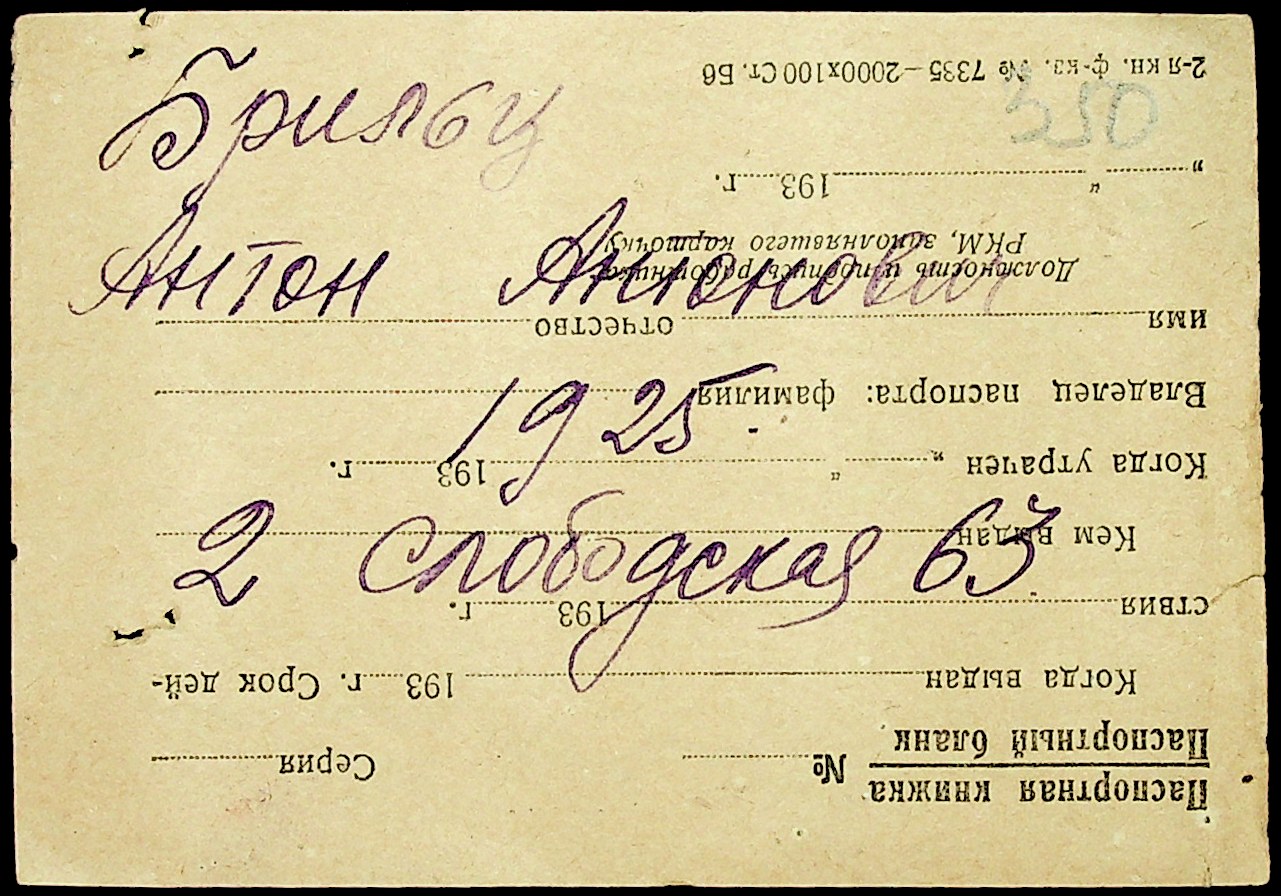 Брильц
350
Антон Антонович
1925
2 Слободская 63
Паспортная книжка № Серия
Паспортный бланк
Когда выдан 193 г. Срок дей-
ствия 193 г.
Кем выдан
Когда утрачен „ “ 193 г.
Владелец паспорта: фамилия
имя отчество
Должность и подпись работника
РКМ, заполнявшего карточку
„ “ 193 г.
2-я кн. ф-кз. № 7335 — 2000х100 Ст. Бб